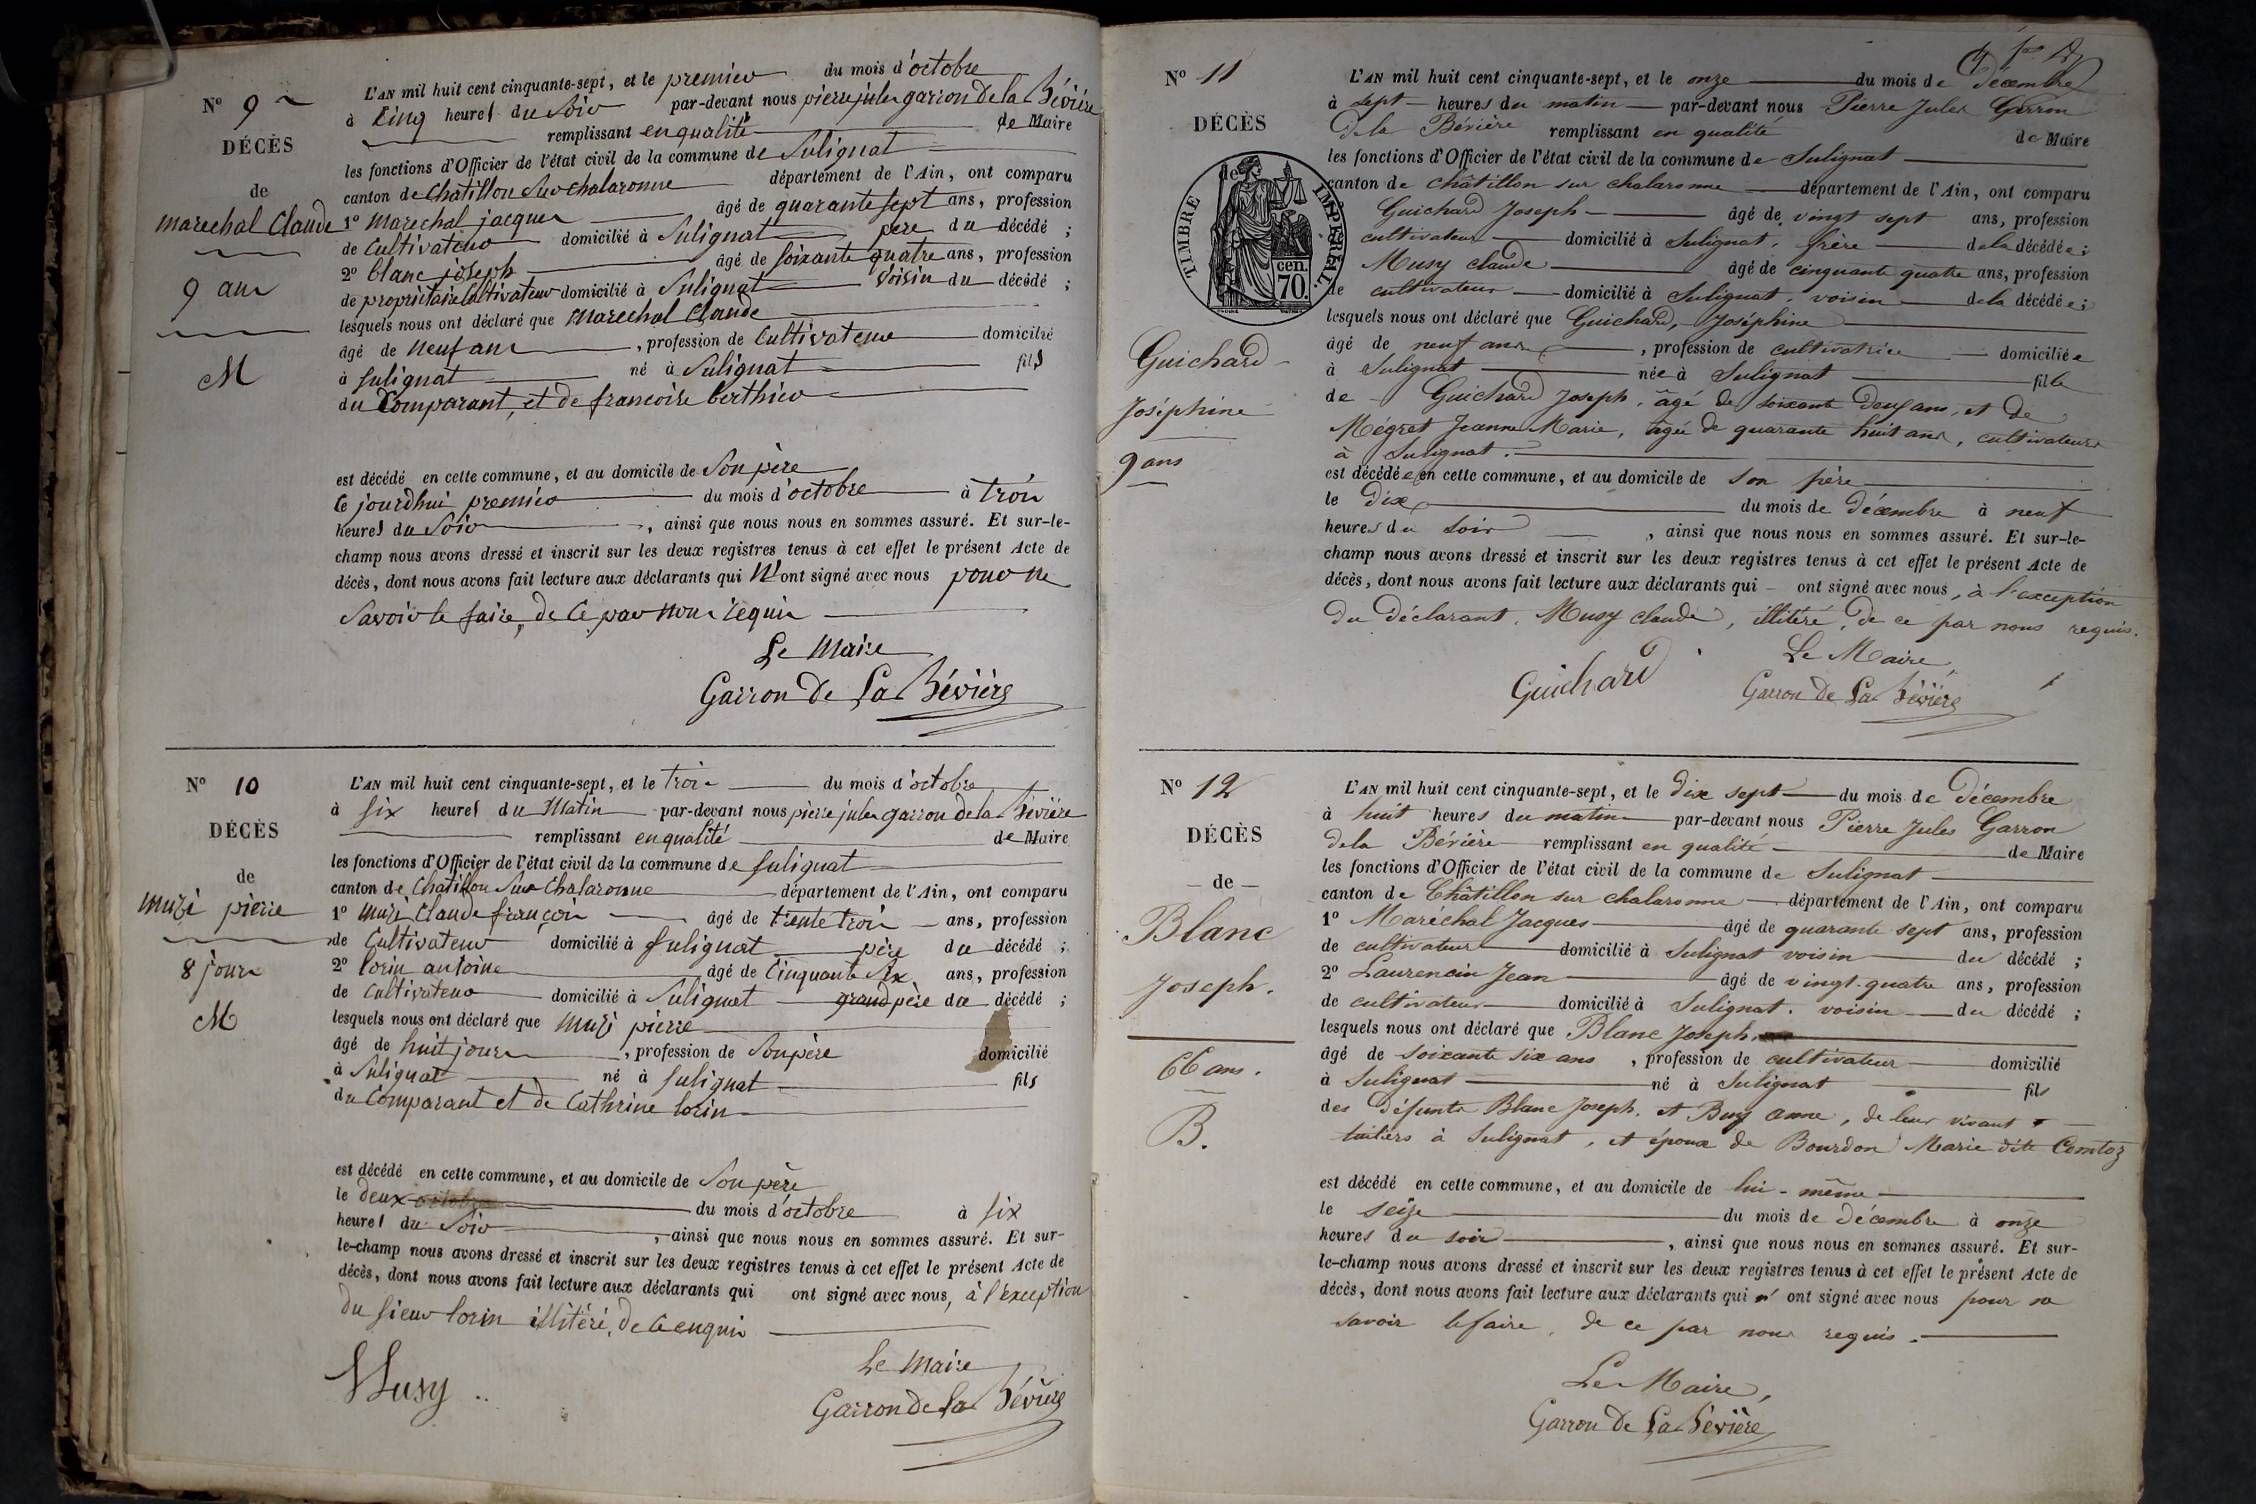 N° 9
DÉCÈS
de
marechal Claude
9 ans
M
L'AN mil huit cent cinquante-sept, et le premier du mois d'octobre
à Cinq heures du Soir par-devant nous pierre jules garron de la Bévière
remplissant en qualité de Maire
les fonctions d'Officier de l'état civil de la commune de Sulignat
canton de Chatillon Sur chalaronne département de l'Ain, ont comparu
1° marechal jacques âgé de quarante sept ans, profession
de Cultivateur domicilié à Sulignat père du décédé ;
2° blanc joseph âgé de soixante quatre ans, profession
de propriétaire Cultivateur domicilié à Sulignat Voisin du décédé ;
lesquels nous ont déclaré que Marechal Claude
âgé de neuf ans, profession de Cultivateur domicilié
à Sulignat né à Sulignat fils
du Comparant, et de francoise berthier
est décédé en cette commune, et au domicile de Son père
le jourdhui premier du mois d'octobre à trois
heures du Soir, ainsi que nous nous en sommes assuré. Et sur-le-
champ nous avons dressé et inscrit sur les deux registres tenus à cet effet le présent Acte de
décès, dont nous avons fait lecture aux déclarants qui N'ont signé avec nous pour ne
Savoir le faire, de Ce par nous requis
Le Maire
Garron De La Bévière
N° 10
DÉCÈS
de
muzi pierre
8 jours
M
L'AN mil huit cent cinquante-sept, et le trois du mois d'octobre
à six heures du Matin par-devant nous pierre jules garron de la Bévière
remplissant en qualité de Maire
les fonctions d'Officier de l'état civil de la commune de Sulignat
canton de Chatillon Sur Chalaronne département de l'Ain, ont comparu
1° muzi Claude françois âgé de trente trois ans, profession
de Cultivateur domicilié à Sulignat père du décédé ;
2° lorin antoine âgé de Cinquante six ans, profession
de Cultivateur domicilié à Sulignat grand père du décédé ;
lesquels nous ont déclaré que Muzi pierre
âgé de huit jours, profession de Son père domicilié
à Sulignat né à Sulignat fils
du Comparant et de Cathrine lorin
est décédé en cette commune, et au domicile de Son père
le deux du mois d'octobre à six
heures du Soir, ainsi que nous nous en sommes assuré. Et sur-
le-champ nous avons dressé et inscrit sur les deux registres tenus à cet effet le présent Acte de
décès, dont nous avons fait lecture aux déclarants qui ont signé avec nous, à l'exception
du sieur lorin illitéré, de Ce enquis
Musy
Le Maire
Garron de La Bévière
N° 11
DÉCÈS
de
TIMBRE IMPÉRIAL.
cen.
70.
Guichard
Joséphine
9 ans
L'AN mil huit cent cinquante-sept, et le onze du mois de Décembre
à sept heures du matin par-devant nous Pierre Jules Garron
De la Bévière remplissant en qualité de Maire
les fonctions d'Officier de l'état civil de la commune de Sulignat
canton de Châtillon sur chalaronne département de l'Ain, ont comparu
Guichard Joseph âgé de vingt sept ans, profession
cultivateur domicilié à Sulignat, frère de la décédée ;
Musy claude âgé de cinquante quatre ans, profession
de cultivateur domicilié à Sulignat, voisin de la décédée ;
lesquels nous ont déclaré que Guichard, Joséphine
âgé de neuf ans, profession de cultivatrice domiciliée
à Sulignat née à Sulignat fille
de Guichard Joseph, âgé de soixante deux ans, et de
Mégret Jeanne Marie, âgée de quarante huit ans, cultivateurs
à Sulignat.
est décédée en cette commune, et au domicile de son père
le Dix du mois de Décembre à neuf
heures du soir, ainsi que nous nous en sommes assuré. Et sur-le-
champ nous avons dressé et inscrit sur les deux registres tenus à cet effet le présent Acte de
décès, dont nous avons fait lecture aux déclarants qui – ont signé avec nous, à l'exception
Du Déclarant, Musy claude, illitéré, de ce par nous requis.
Le Maire
Guichard
Garron De La Bévière
N° 12
DÉCÈS
– de –
Blanc
Joseph.
66 ans.
B.
L'AN mil huit cent cinquante-sept, et le Dix sept du mois de Décembre
à huit heures du matin par-devant nous Pierre Jules Garron
De la Bévière remplissant en qualité de Maire
les fonctions d'Officier de l'état civil de la commune de Sulignat
canton de Châtillon sur chalaronne département de l'Ain, ont comparu
1° Maréchal Jacques âgé de quarante sept ans, profession
de cultivateur domicilié à Sulignat voisin du décédé ;
2° Laurencin Jean âgé de vingt-quatre ans, profession
de cultivateur domicilié à Sulignat, voisin du décédé ;
lesquels nous ont déclaré que Blanc Joseph
âgé de soixante six ans, profession de cultivateur domicilié
à Sulignat né à Sulignat fils
des Défunts Blanc Joseph, et Buy anne, de leur vivant
tuiliers à Sulignat, et époux de Bourdon Marie dite Comtoz
est décédé en cette commune, et au domicile de lui-même
le seize du mois de Décembre à onze
heures du soir, ainsi que nous nous en sommes assuré. Et sur-
le-champ nous avons dressé et inscrit sur les deux registres tenus à cet effet le présent Acte de
décès, dont nous avons fait lecture aux déclarants qui n'ont signé avec nous pour ne
savoir le faire, de ce par nous requis.
Le Maire,
Garron De La Bévière